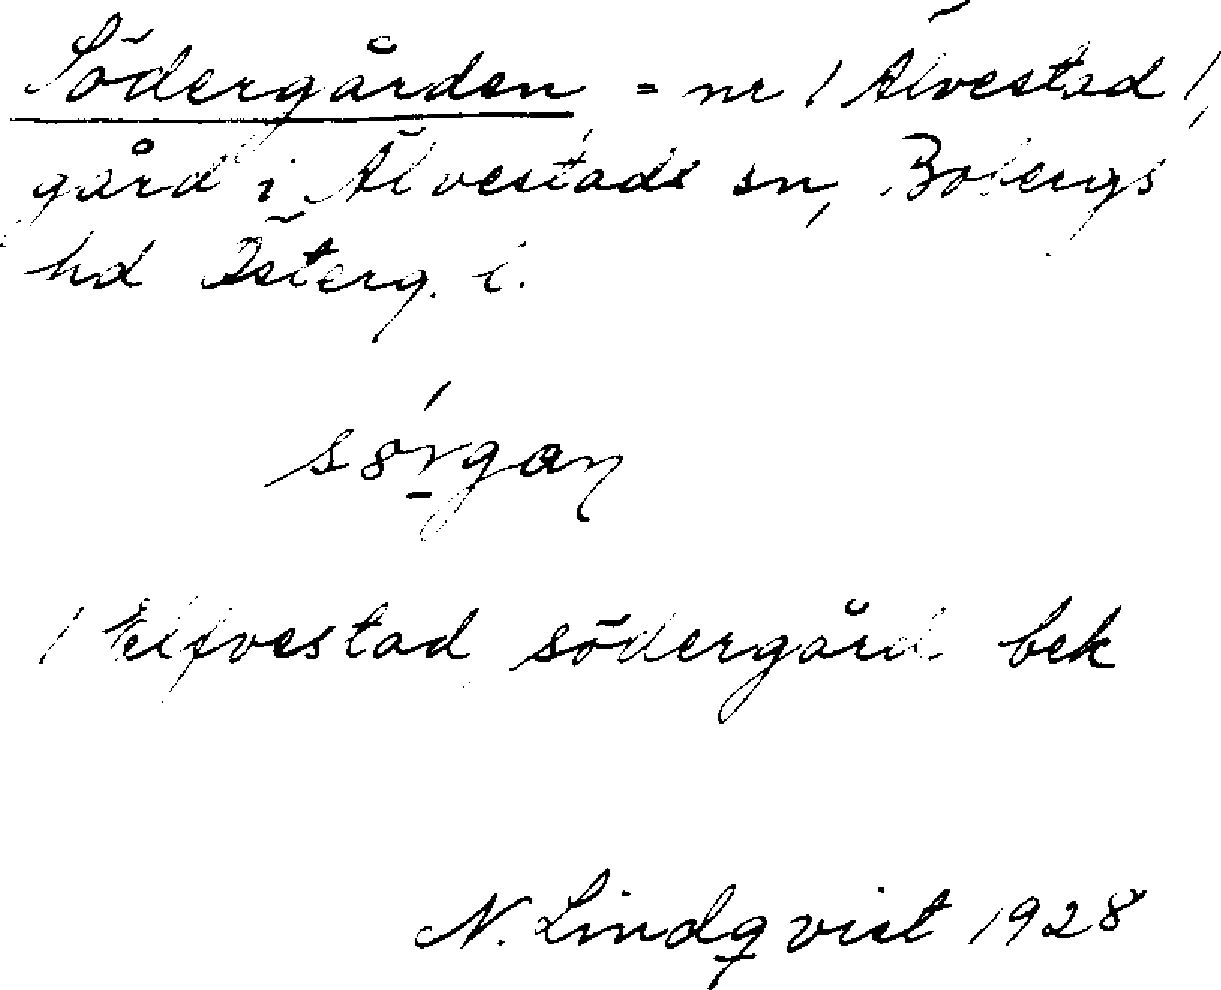 Södergården = nr 1 Älvestad 1,
gård i Älvestads sn, Bobergs
hd Österg. l.
sörgan
1 Elfvestad södergård bek
N. Lindqvist 1928